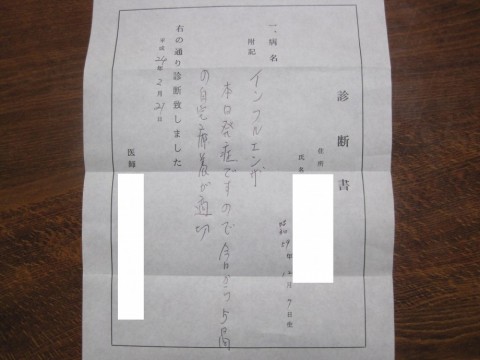 診断書
住所
氏名
昭和59年12月9日生
一、病名
インフルエンザ
附記
本日発症ですので今日から5日間
の自宅療養が適切
右の通り診断致しました
平成24年2月21日
医師